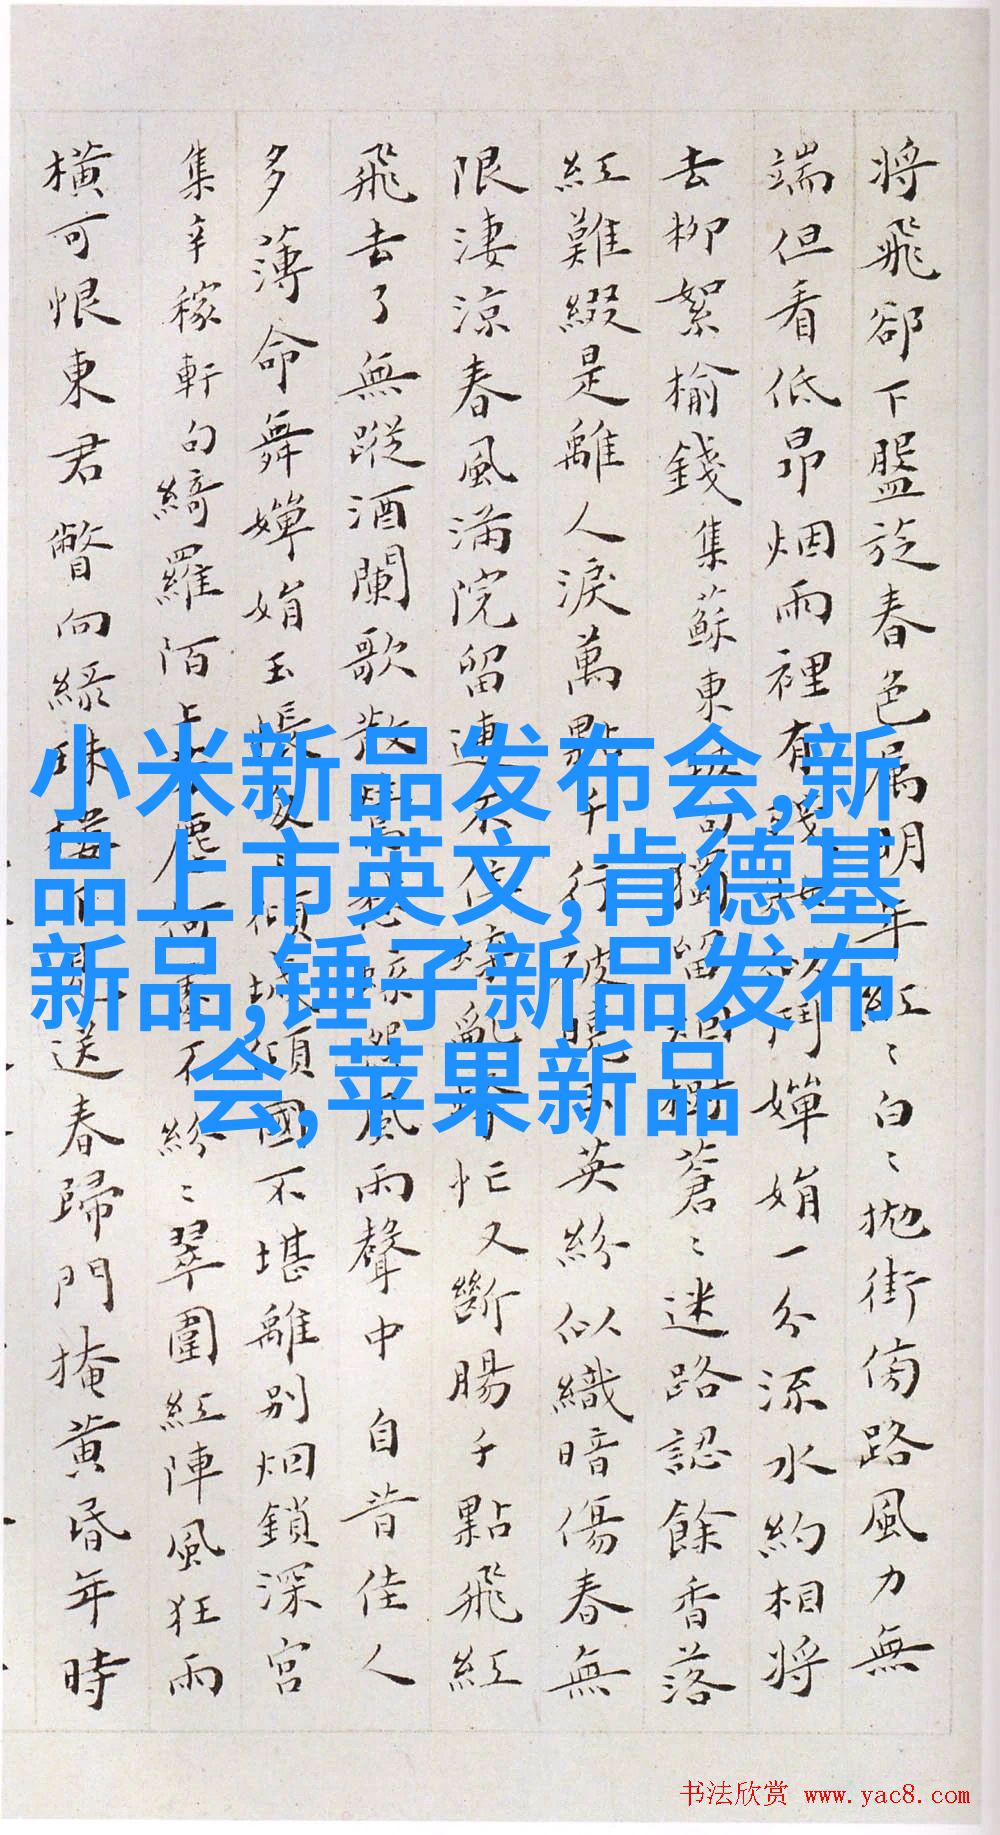 将飛卻下盤旋春色属明年紅〻白〻抛街傍路風力無
端但看低昂烟雨裡有鬥嬋娟一分流水約相將
去柳絮榆錢集蘇東留蒼〻迷路認餘香落
紅難綴是離人淚萬點千行破曉英紛似織暗傷春無
限淒涼春風滿院留連不住亂忙又斷腸千點飛紅
飛去了無蹤酒闌歌散風雨聲中 自昔佳人
多薄命舞嬋娟玉傾城傾國不堪離別烟鎖深宮
集辛稼軒句綺羅陌上不紛〻翠圍紅陣風狂雨
橫可恨東君瞥向綠珠樓下送春歸門掩黄昏年時
小米新品发布会,新
品上市英文,肯德基
新品,锤子新品发布
会,苹果新品
书法欣赏 www.yac8.com